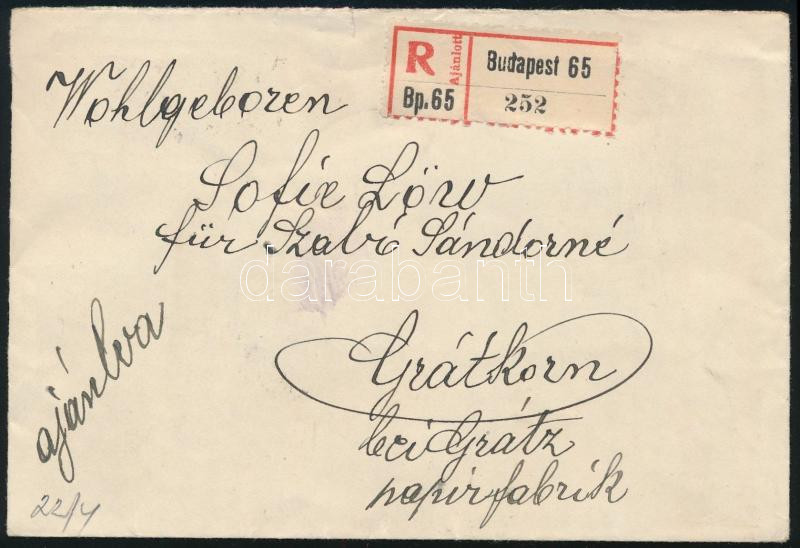 R Ajánlott Budapest 65
Bp.65 252
Wohlgeboren
Sofie Löw
für Szabó Sándorné
darabanth
ajánlva
Grátkorn
bei Grátz
papirfabrik
22/4